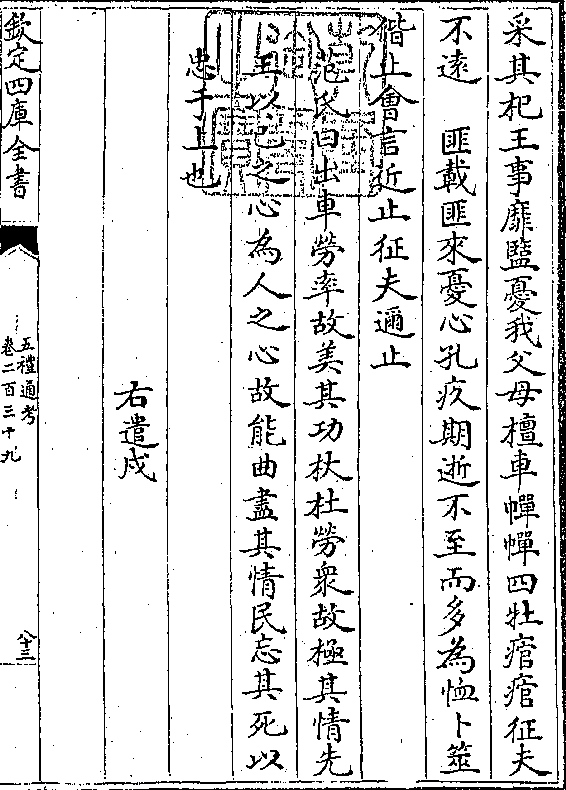 采其杞王事靡盬憂我父母檀車幝幝四牡痯痯征夫
不遠　匪載匪來憂心孔疚期逝不至而多為恤卜筮
偕止會言近止征夫邇止
范氏曰出車勞率故美其功杕杜勞衆故極其情先
王以己之心為人之心故能曲盡其情民忘其死以
忠于上也
右遣戍
欽定四庫全書
五禮通考
卷二百三十九
八十三